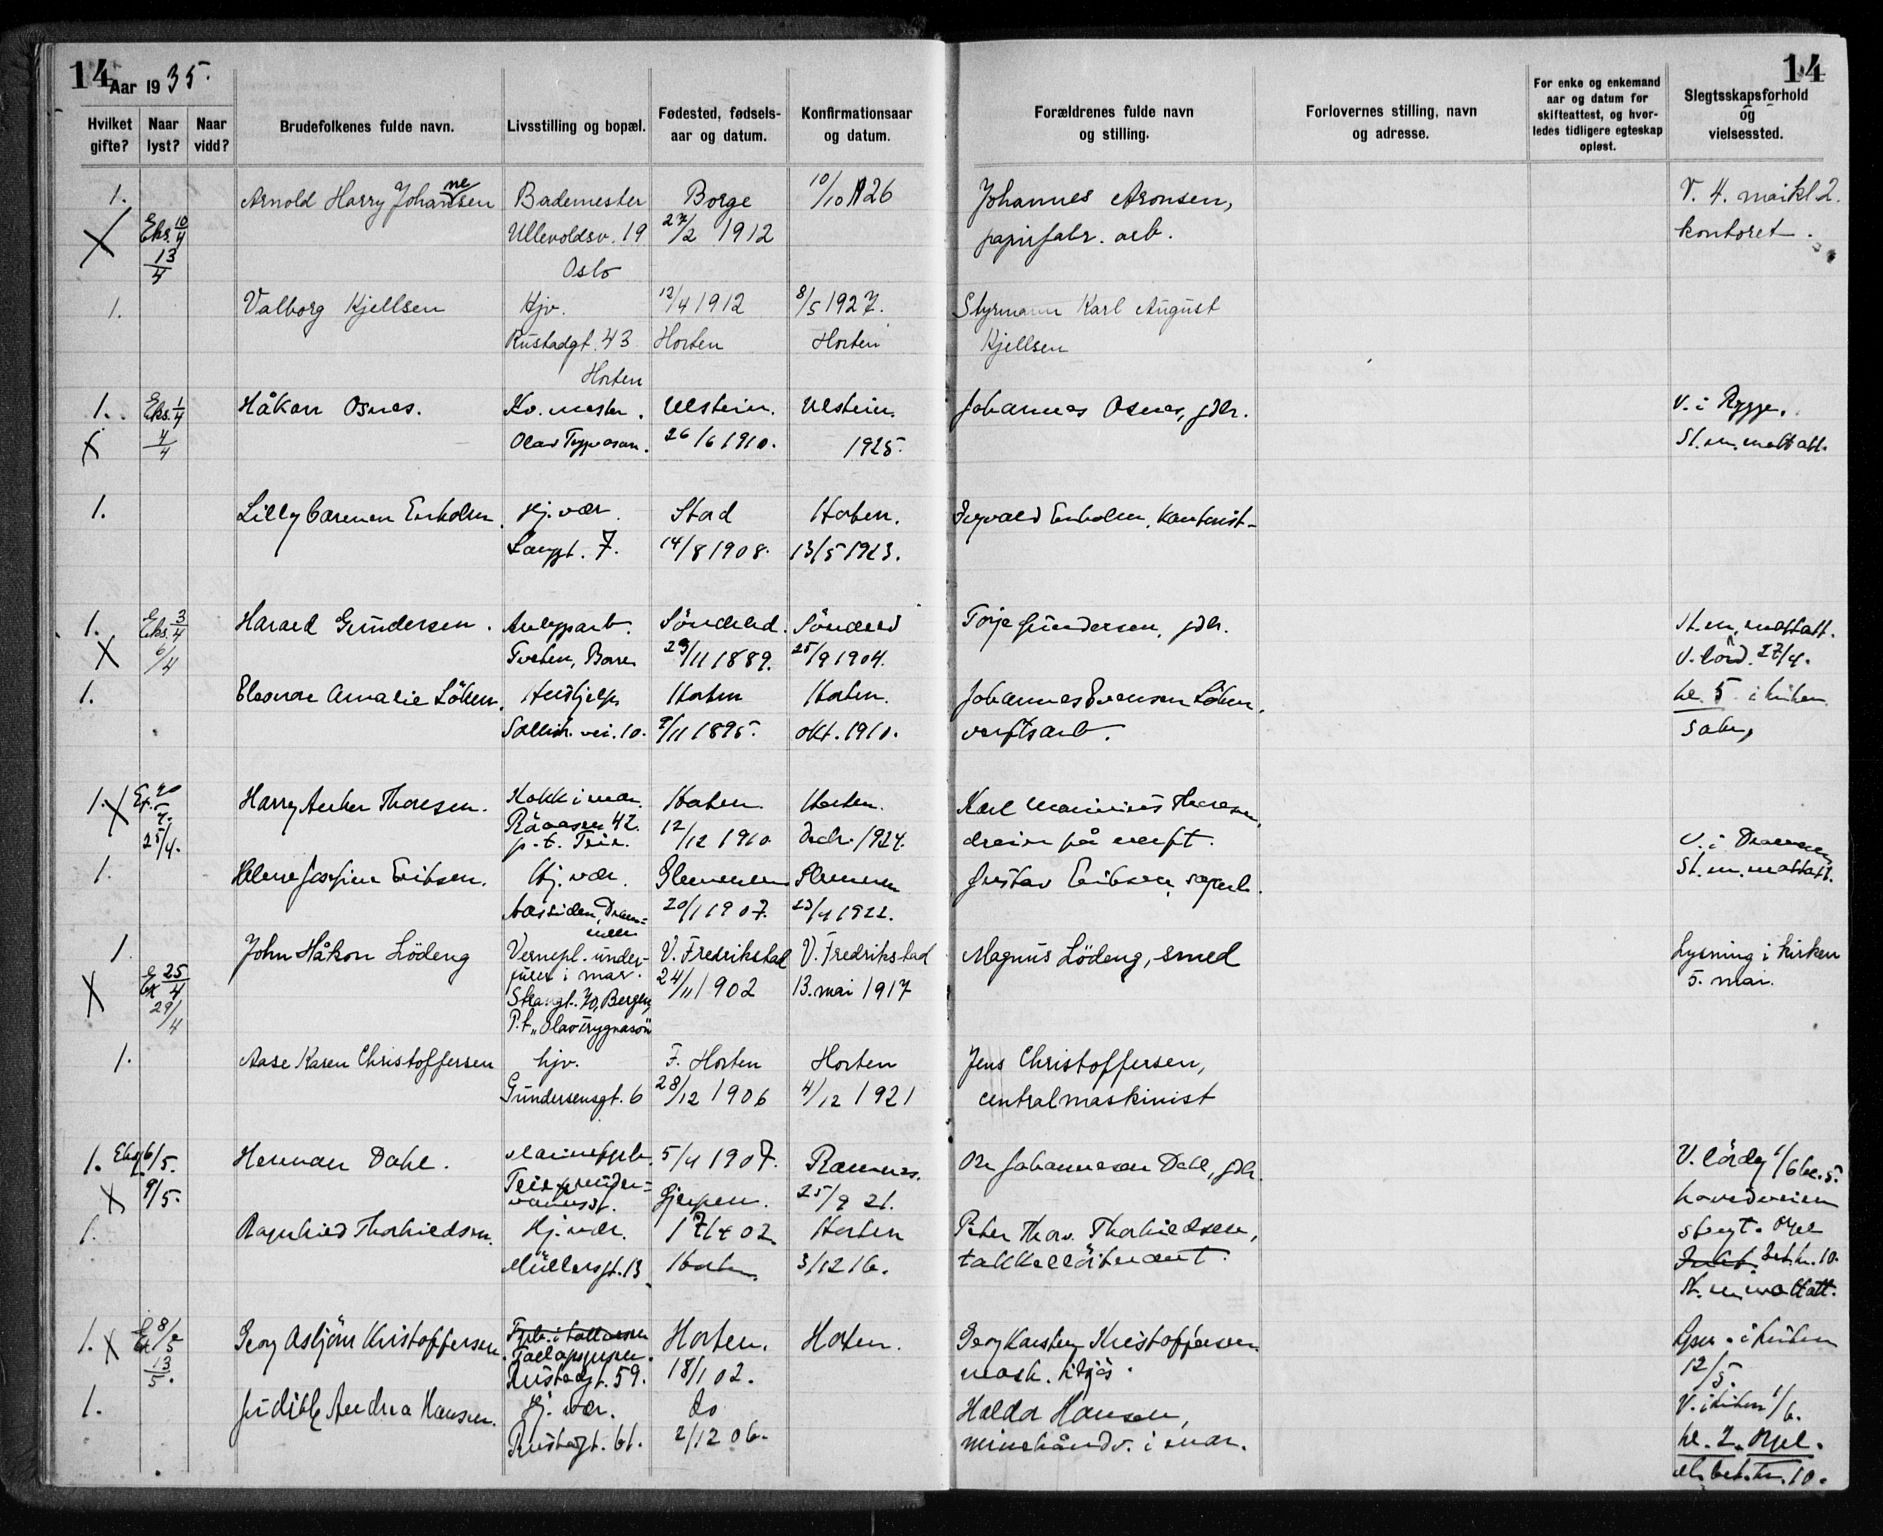 14 Aar 1935.
14
Hvilket gifte?
Naar lyst?
Naar vidd?
Brudefolkenes fulde navn.
Livsstilling og bopæl.
Fødested, fødsels-
aar og datum.
Konfirmationsaar
og datum.
Forældrenes fulde navn
og stilling.
Forlovernes stilling, navn
og adresse.
For enke og enkemand
aar og datum for
skifteattest, og hvor-
ledes tidligere egteskap
opløst.
Slegtsskapsforhold
og
vielsessted.
1. Arnold Harry Johannesen Bademester Borge 10/10 1926 Johannes Aronsen, V. 4. mai kl 2.
X Eks. 10/4 Ullevoldsv. 19 27/2 1912 papirfabr. arb. kontoret.
13/4 Oslo
1. Valborg Kjellsen Hjv. 12/4 1912 8/5 1927. Styrmann Karl August
Rustadgt. 43 Horten Horten Kjellsen
Horten
1. Eks. 1/4 Håkon Osnes. Kv. mester. Ulstein. Ulstein. Johannes Osnes, gdbr. V. i Rygge.
X 4/4 Olav Trygvason. 26/6 1910. 1925. St. m. mottatt.
1. Lilly Carmen Enholm. Hj. vær. Stord Horten. Ingvald Enholm, kontorist
Langgt. 7. 14/8 1908. 13/5 1923.
1. Eks. 3/4 Harald Gundersen. Anleggsarb. Söndeled. Söndeled Torje Gundersen, gdbr. St. m. mottatt.
X 6/4 Tveten, Borre 29/11 1889. 25/9 1904. V. lörd. 27/4.
1. Eleonore Amalie Löken. Hushjelp Horten Horten. Johannes Evensen Löken, kl. 5 i kirken
Sollist. vei. 10. 9/11 1895. okt. 1910. verftsarb.
1. X Harry Anker Thoresen. Kokk i mar. Horten. Horten. Karl Marinius Thoresen,
25/4. Rååsen 42. 12/12 1910 Decbr. 1924. dreier på verft. V. i Drammen
p. t. Teie.
1. Helene Josefine Eriksen. Hj. vær. Glemmen Glemmen Gustav Eriksen, St. m. mottatt.
Aassiden, Dram- 20/1 1907. 23/4 1922.
men
1. John Håkon Lödeng Vernepl. under- V. Fredrikstad V. Fredrikstad Magnus Lödeng, smed Lysning i kirken
X Ek 25/4 furer i mar. 24/11 1902 13. mai 1917 5. mai.
29/4 Strangt. 70, Bergen,
P.t. "Olav Trygvason"
1. Aase Karen Christoffersen hjv. F. Horten Horten Jens Christoffersen,
Gundersensgt. 6 28/12 1906 4/12 1921 centralmaskinist
1. Eks. 6/5. Herman Dahl. 5/4 1907. Ramnes. Ole Johannesen Dahl, gdbr. V. lördag 1/6 kl. 5.
X 9/5. Gjerpen. 25/9 21. hovedveien
1. Ragnhild Thorkildsen. Hj. vær. 17/4 02. Horten Peter Thorv. Thorkildsen,
Müllersgt. 13 Horten 3/12 16. takkellöitnant. bet. kr. 10.
St. m. mottatt.
1. X 8/5 Georg Asbjörn Kristoffersen. Horten. Horten. Georg Karsten Kristoffersen Lysn. i kirken
13/5. Rustadgt. 59. 18/1 02. mask. 12/5.
1. Judith Andrea Hansen. Hj. vær. do Haldor Hansen, V. i kirken 1/6.
Rustadgt. 61. 2/12 06. minehåndv. i mar. kl. 2. Orgel.
bet. kr. 10.